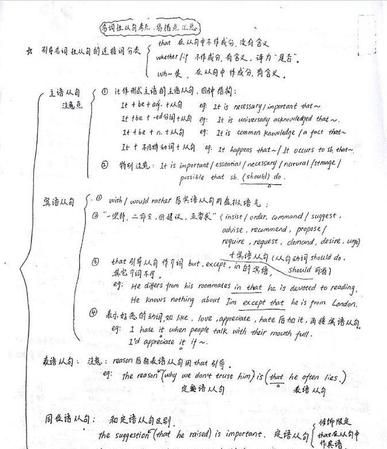 名词性从句考点、易错点汇总
☆ 引导名词性从句的连接词分类
that 在从句中不作成分,没有含义
whether/if 不作成分,有含义,译为"是否".
wh-类 在从句中作成分,有含义.
主语从句
注意点
① it作形式主语的主语从句,四种结构:
It + be + adj. + 从句 eg: It is necessary/important that~
It + be + -ed分词 + 从句 eg: It is universally acknowledged that~.
It + be + n. + 从句 eg: It is common knowledge / a fact that~
It + 不及物动词 + 从句 eg: It happens that~/ It occurs to sb. that~.
② 特别注意: It is important/essential/necessary/natural/strange/
possible that sb. (should) do.
宾语从句
① wish/would rather 后宾语从句用虚拟语气;
② "一坚持,二命令,四建议,五要求" (insist/order, command/suggest,
advise, recommend, propose/
require, request, demand, desire, urge)
+ 宾语从句 (从句动词 should do,
should 可省)
③ that 引导从句作介词 but, except, in 的宾语,
其它介词不用.
eg: He differs from his roommates in that he is devoted to reading.
He knows nothing about Jim except that he is from London.
④ 表示好恶的动词, like, love, appreciate, hate 后加it, 再接宾语从句
eg: I hate it when people talk with their mouth full.
I'd appreciate it if~.
表语从句: 注意: reason 后的表语从句用that 引导.
eg: The reason (why we don't trust him) is (that he often lies.)
定语从句 表语从句
同位语从句: 和定语从句区别.
the suggestion (that he raised) is important. 定语从句
修饰限定
that在从句中
作宾语